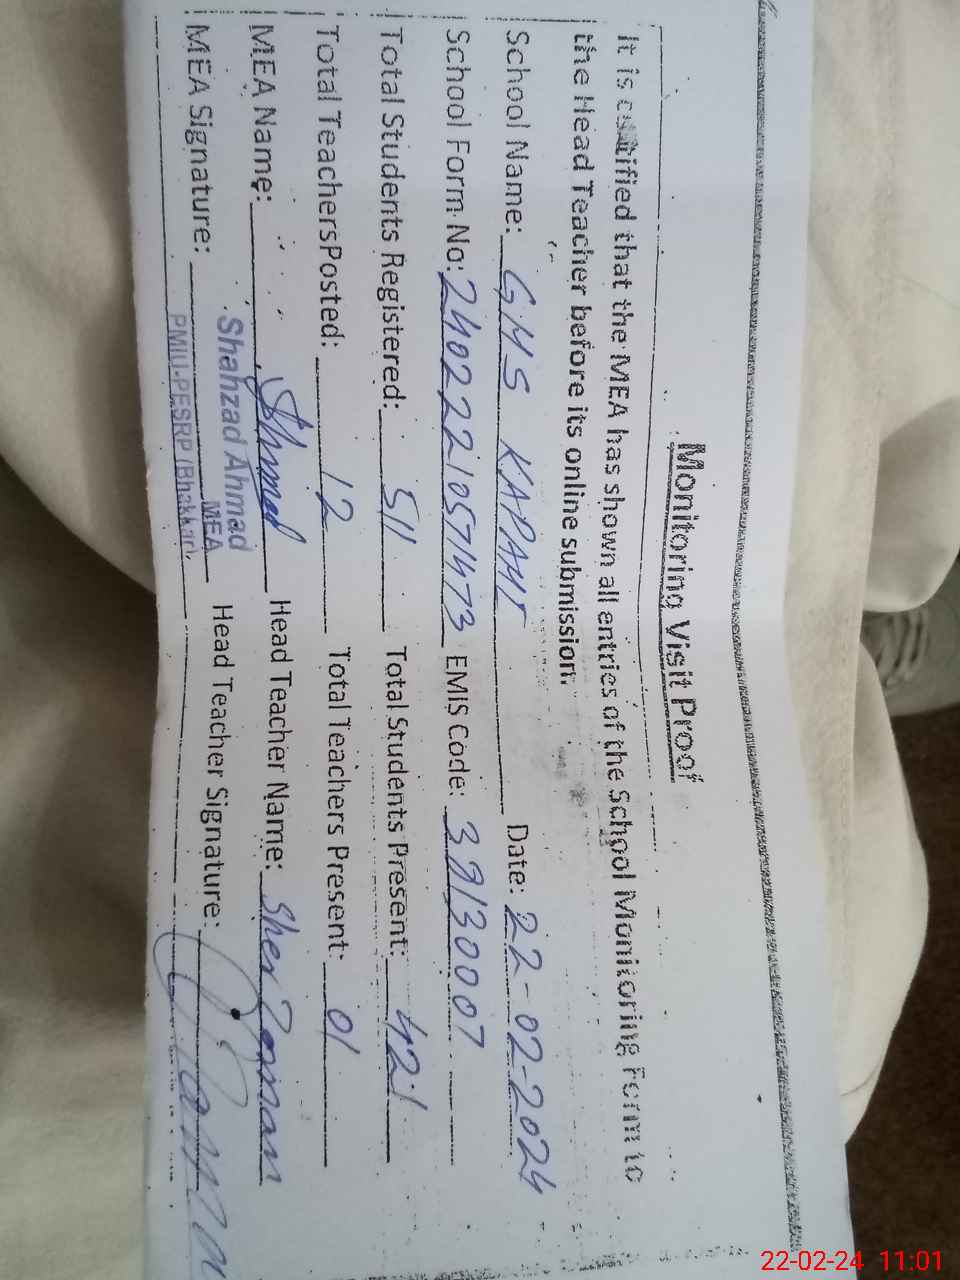 Monitoring Visit Proof
It is certified that the MEA has shown all entries of the School Monitoring Form to
the Head Teacher before its online submission.
School Name: GMS KAPAHI Date: 22-02-2024
School Form No: 24022210571473 EMIS Code: 33130007
Total Students Registered: 511 Total Students Present: 421
Total TeachersPosted: 12 Total Teachers Present: 01
MEA Name: Ahmad Head Teacher Name: Sher Zaman
MEA Signature: Head Teacher Signature:
Shahzad Ahmad
MEA
PMIU-PESRP (Bhakkar)
22-02-24 11:01